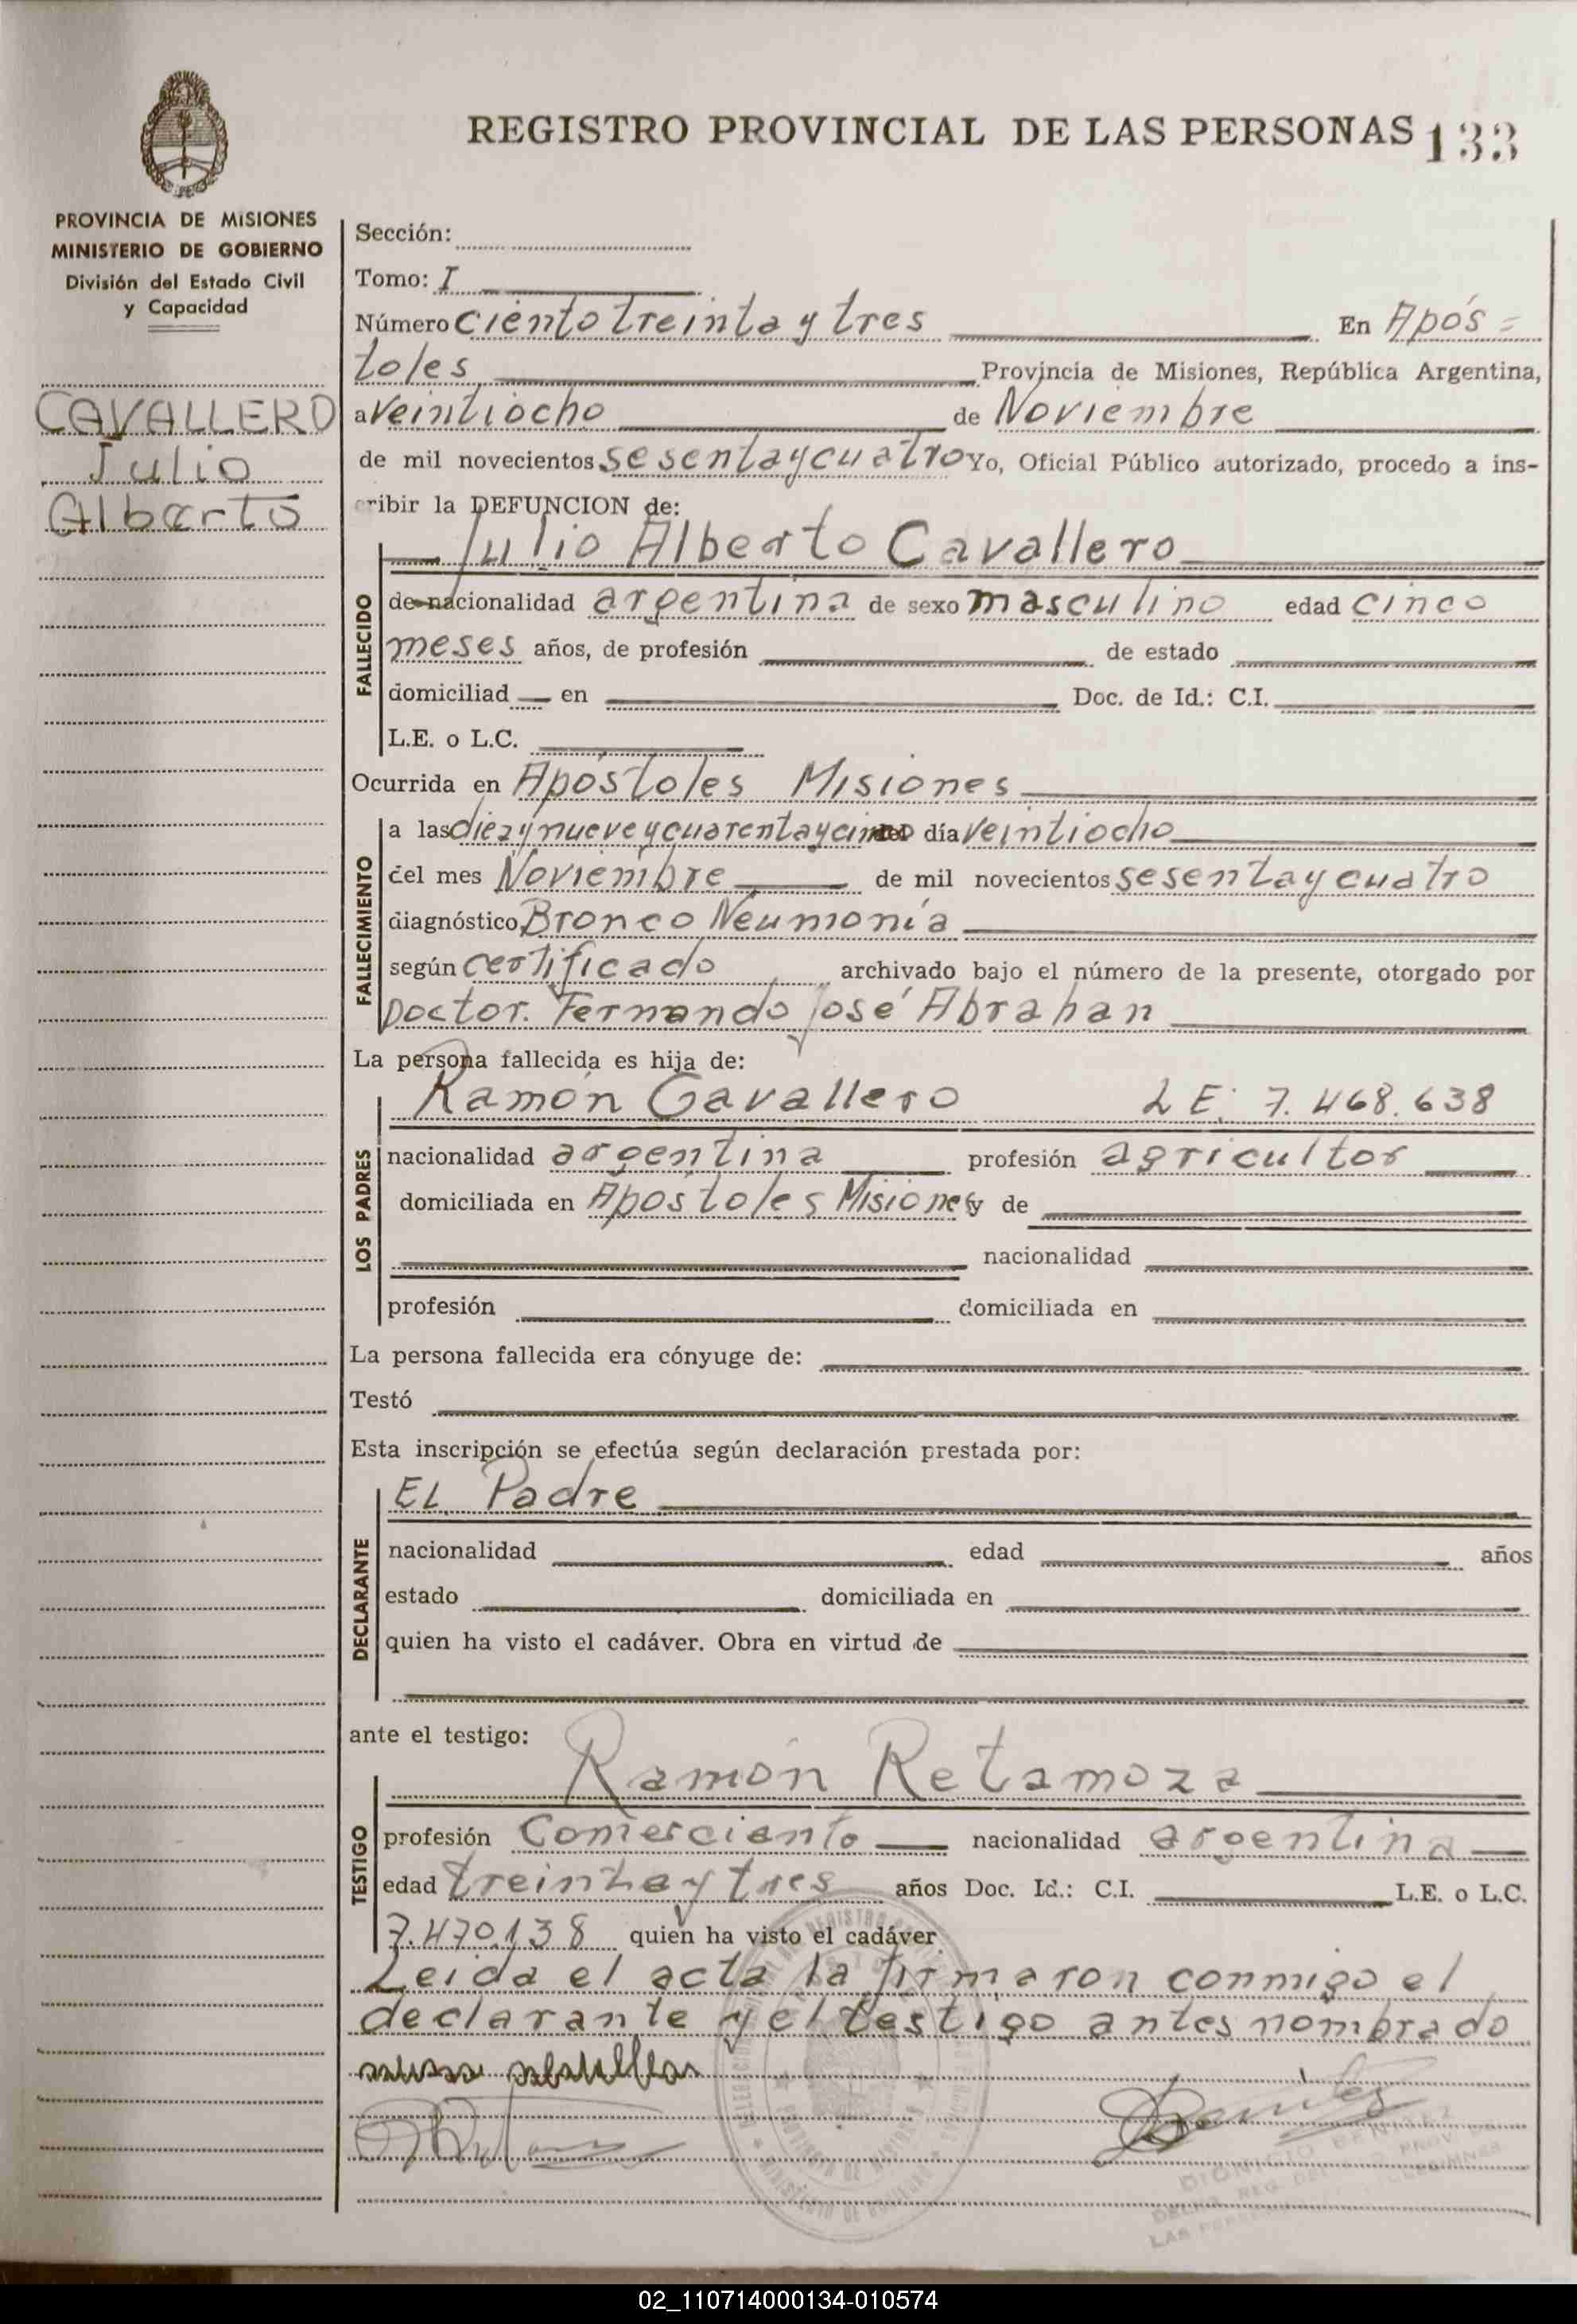 REGISTRO PROVINCIAL DE LAS PERSONAS 133
PROVINCIA DE MISIONES
MINISTERIO DE GOBIERNO
División del Estado Civil
y Capacidad
CAVALLERO
Julio
Alberto
Sección:
Tomo: I
Número ciento treinta y tres En Após=
toles Provincia de Misiones, República Argentina,
a veintiocho de Noviembre
de mil novecientos sesentaycuatro Yo, Oficial Público autorizado, procedo a ins-
cribir la DEFUNCION de:
Julio Alberto Cavallero
FALLECIDO
de nacionalidad argentina de sexo masculino edad cinco
meses años, de profesión de estado
domiciliad en Doc. de Id.: C.I.
L.E. o L.C.
Ocurrida en Apóstoles Misiones
FALLECIMIENTO
a las diez y nueve y cuarenta y cinco del día veintiocho
del mes Noviembre de mil novecientos sesentaycuatro
diagnóstico Bronco Neumonía
según certificado archivado bajo el número de la presente, otorgado por
Doctor. Fernando José Abrahan
La persona fallecida es hija de:
Ramón Cavallero L E: 7.468.638
LOS PADRES
nacionalidad argentina profesión agricultor
domiciliada en Apóstoles Misiones y de
nacionalidad
profesión domiciliada en
La persona fallecida era cónyuge de:
Testó
Esta inscripción se efectúa según declaración prestada por:
EL Padre
DECLARANTE
nacionalidad edad años
estado domiciliada en
quien ha visto el cadáver. Obra en virtud de
ante el testigo:
Ramón Retamoza
TESTIGO
profesión Comerciante nacionalidad argentina
edad treinta y tres años Doc. Id.: C.I. L.E. o L.C.
7.470.138 quien ha visto el cadáver
Leida el acta la firmaron conmigo el
declarante y el testigo antes nombrado
DIONICIO BENITEZ
02_110714000134-010574